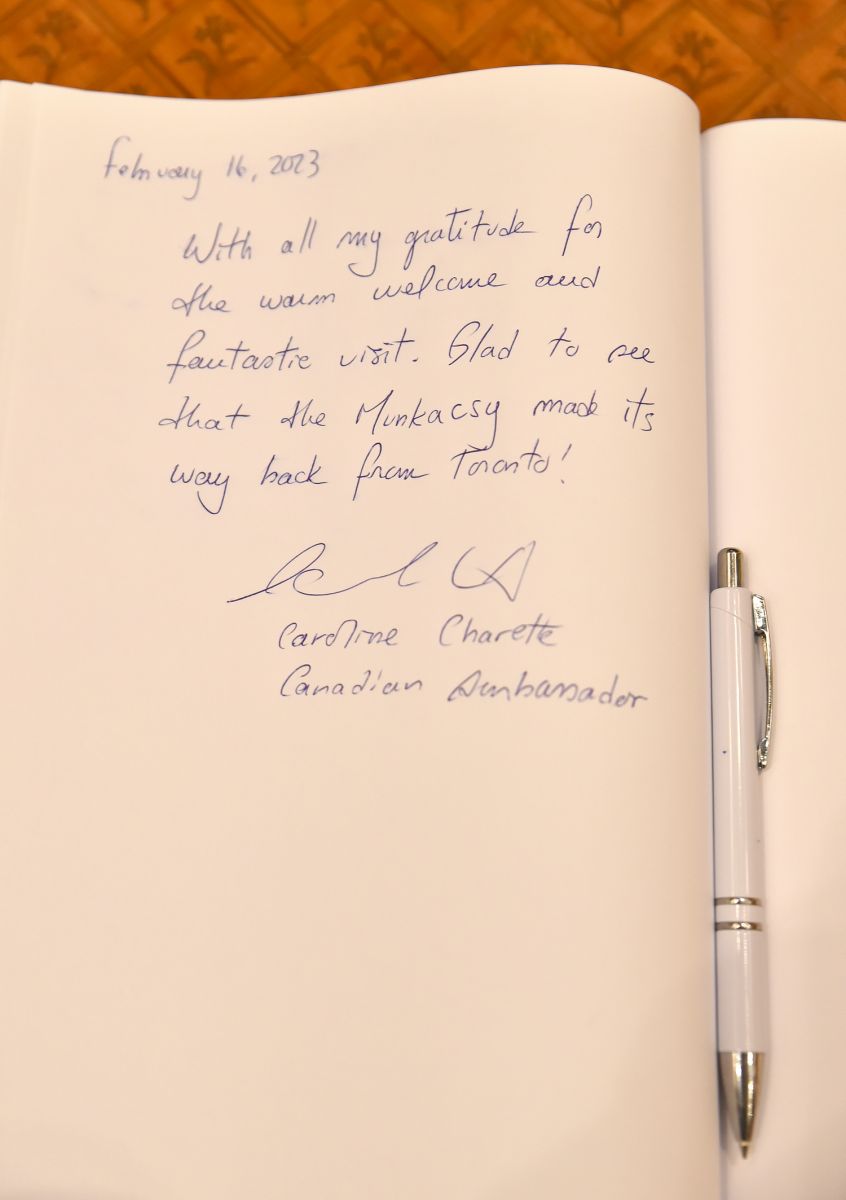 February 16, 2023
With all my gratitude for
the warm welcome and
fantastic visit. Glad to see
that the Munkacsy made its
way back from Toronto!
Caroline Charette
Canadian Ambassador